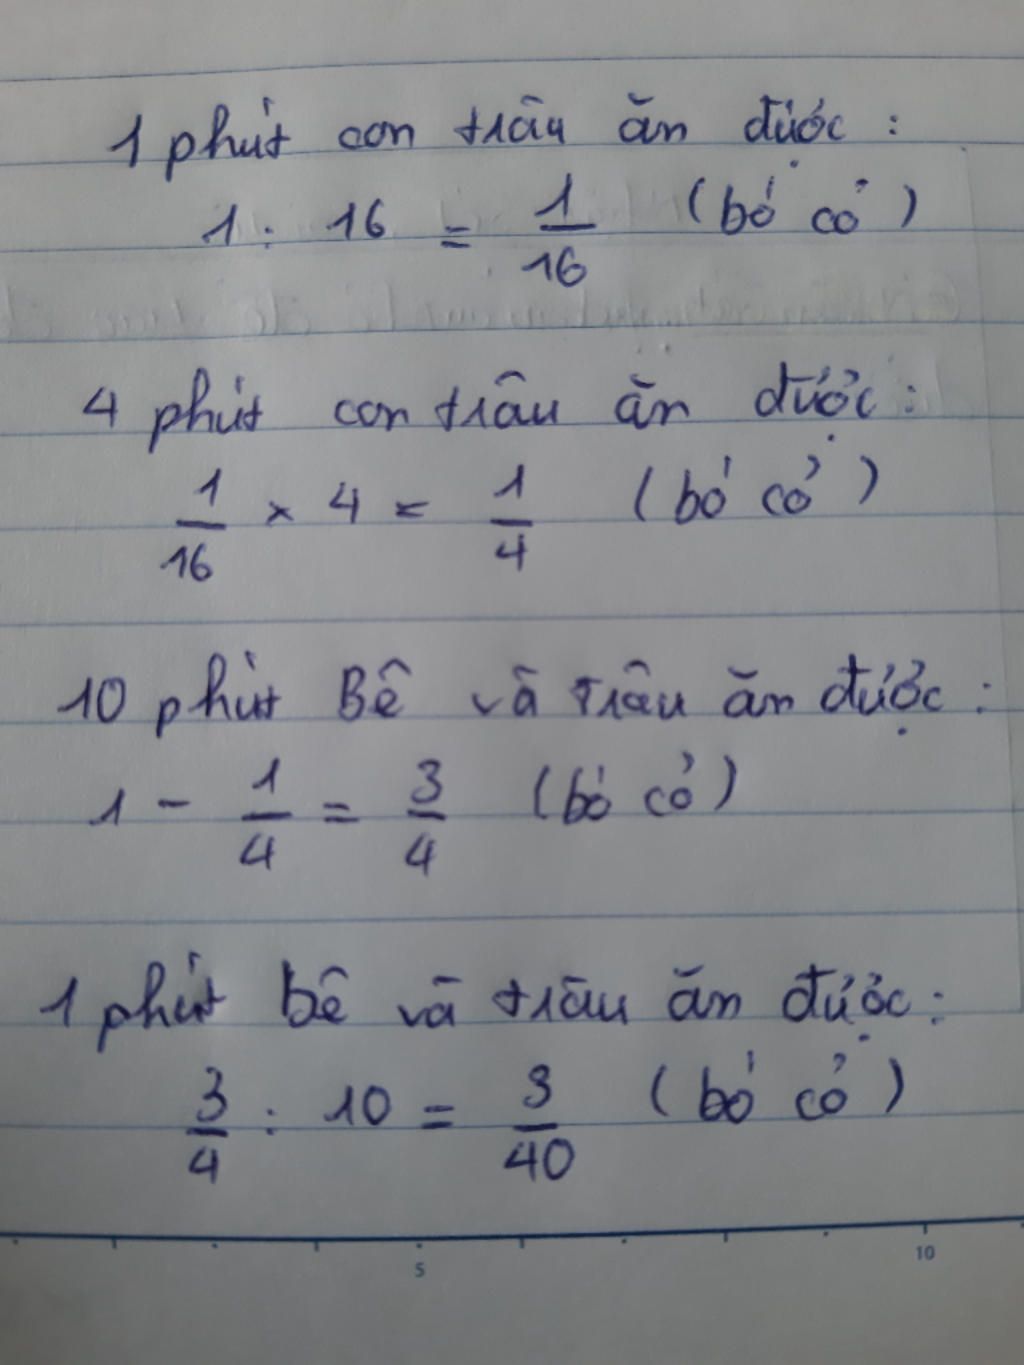 1 phút con trâu ăn được :
1 : 16 = 1/16 (bó cỏ)
4 phút con trâu ăn được :
1/16 × 4 = 1/4 (bó cỏ)
10 phút Bê và trâu ăn được :
1 - 1/4 = 3/4 (bó cỏ)
1 phút bê và trâu ăn được :
3/4 : 10 = 3/40 (bó cỏ)
5 10